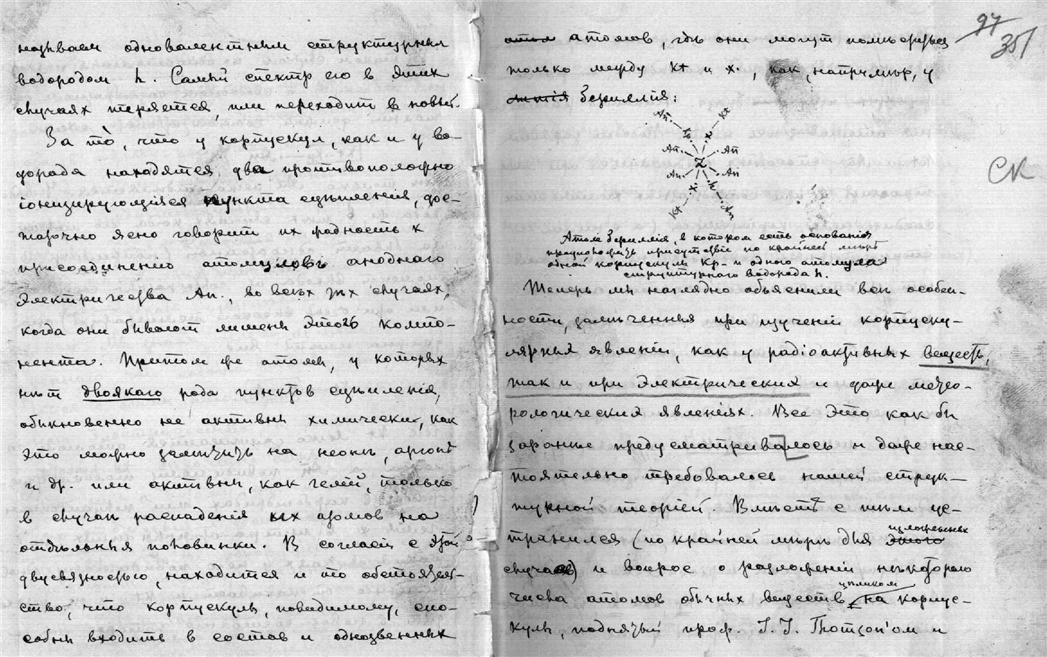 называем одновалентным структурным
водородом h. Самый спектр его в этих
случаях теряется или переходит в новый.
За то, что у корпускул, как и у во-
дорода находятся два противоположно
іонизирующійся пункта сцепленія, дос-
таточно ясно говорит их
присоединенію атомуловъ аноднаго
электричества An., во всех этих случаях,
когда они бывают лишены этого компо-
нента. При том же атомы, у которых
нѣт двоякаго рода пунктов сцепленія,
обыкновенно не активны химически, как
это можно замѣчать на неонѣ, аргонѣ
и др. или активны, как гелій, только
в случаѣ распаденія их атомов на
отдѣльныя половинки. В согласіи с этой
двусвязностью, находится и то обстоятель-
ство, что корпускулы, повидимому, спо-
собны входить в состав и однозвенных
97
351
атомов, гдѣ они могут помѣщаться
только между Kt и x., как, напримѣр, у
литія бериллія:
An Kt
x
An An
Z
An An
x
Kt An
СК
Атом бериллія, в котором есть основаніе
предполагать присутствіе по крайней мѣрѣ
одной корпускулы Kp. и одного атомула
структурного водорода h.
Теперь мы наглядно объяснили все особен-
ности, замѣченныя при изученіи корпуску-
лярных явленій, как у радіоактивных веществ,
так и при электрических и даже метео-
рологических явленіях. Все это как бы
заранѣе предусматривалось и даже нас-
тоятельно требовалось нашей струк-
турной теоріей. Вместѣ с тѣм ус-
транился (по крайней мѣрѣ для этого
изложенных
случаев) и вопрос о разложеніи нѣкотораго
цѣликом
числа атомов обычных веществ на корпус-
кулы, поднятый проф. J. J. Thomson'ом и